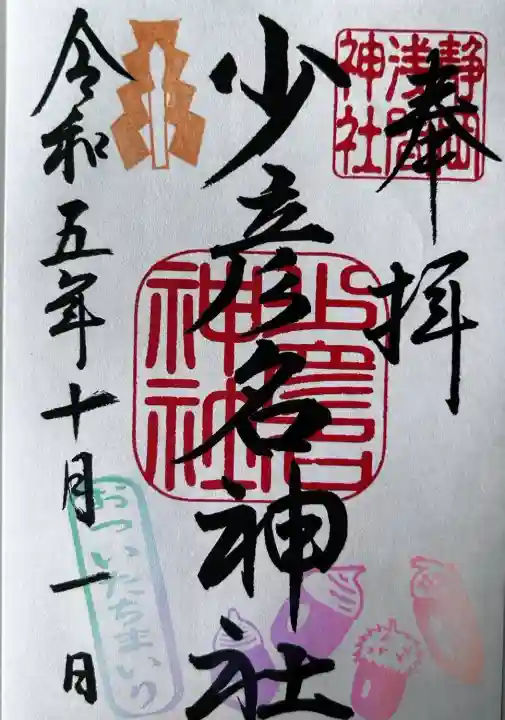 奉拝
静岡
浅間
神社
少彦名神社
少彦名
神社
令和五年十月一日
おついたちまいり